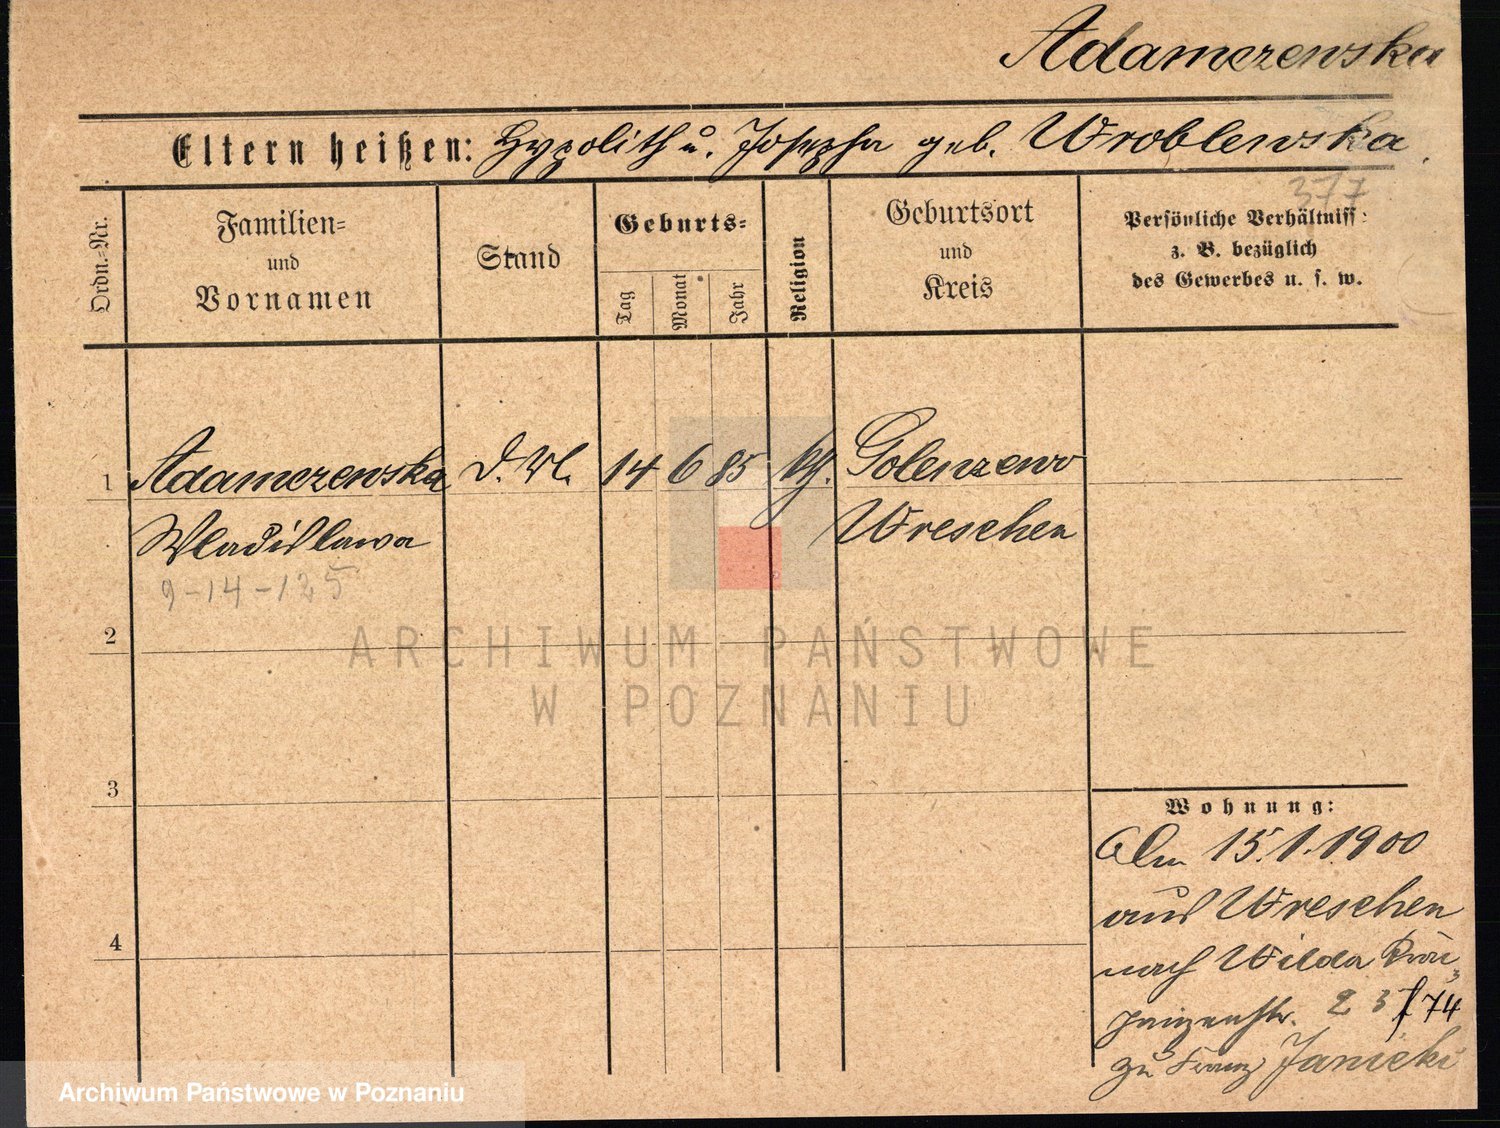 Adamczewska
Eltern heißen: Hypolith u. Josepha geb. Wroblewska.
377
Ordn.-Nr.
Familien-
und
Vornamen
Stand
Geburts-
Tag
Monat
Jahr
Religion
Geburtsort
und
Kreis
Persönliche Verhältniss:
z. B. bezüglich
des Gewerbes u. s. w.
1 Adamczewska d. Wl. 14 6 85 kth. Golenzewo
Wladislawa Wreschen
9-14-125
2
ARCHIWUM PAŃSTWOWE
W POZNANIU
3
Wohnung:
Am 15.1.1900
aus Wreschen
4
nach Wilda Kron-
prinzenstr. 23 / 74
zu Franz Janicki
Archiwum Państwowe w Poznaniu